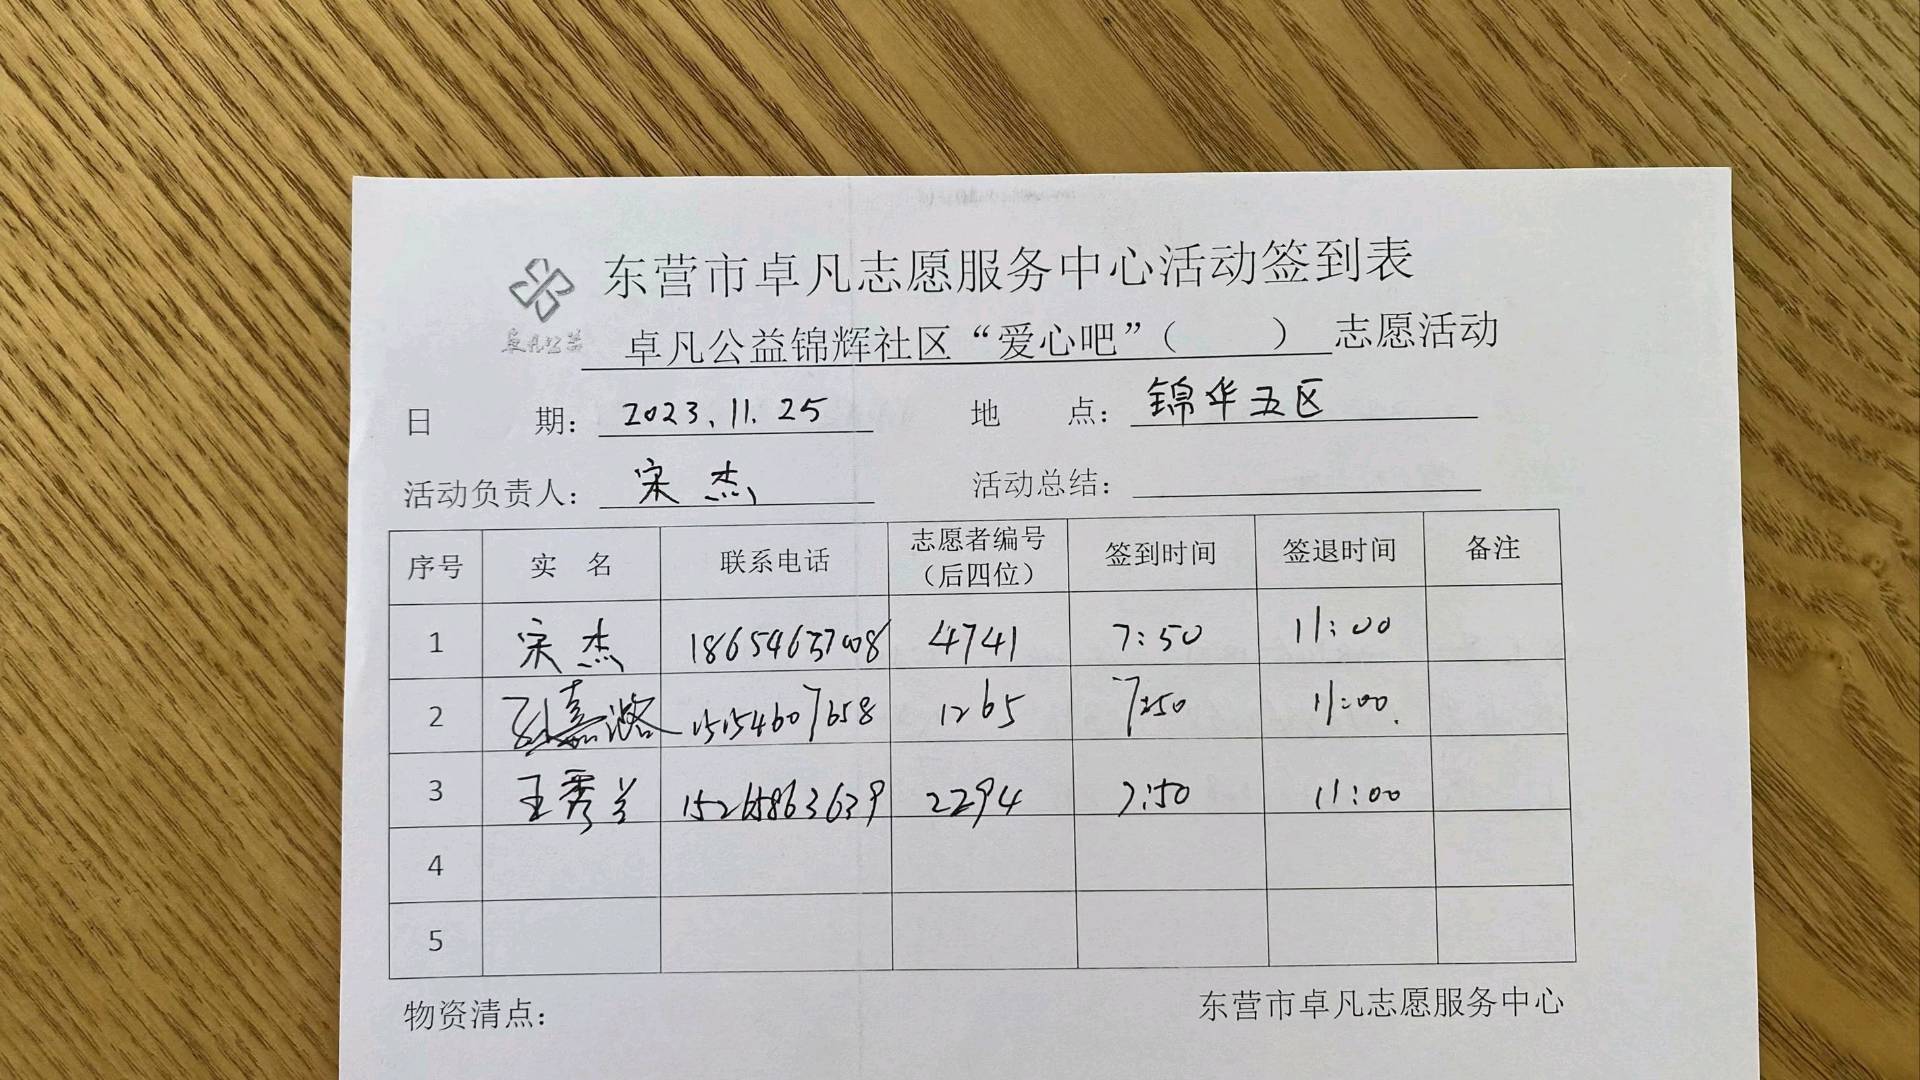 东营市卓凡志愿服务中心活动签到表
卓凡公益
卓凡公益锦辉社区“爱心吧”（ ）志愿活动
日 期：2023.11.25 地 点：锦华五区
活动负责人：宋杰 活动总结：
序号 实 名 联系电话 志愿者编号（后四位） 签到时间 签退时间 备注
1 宋杰 18654637008 4741 7:50 11:00
2 孙嘉潞 15154607658 1265 7:50 11:00
3 王秀兰 15265863639 2294 7:50 11:00
4
5
物资清点： 东营市卓凡志愿服务中心